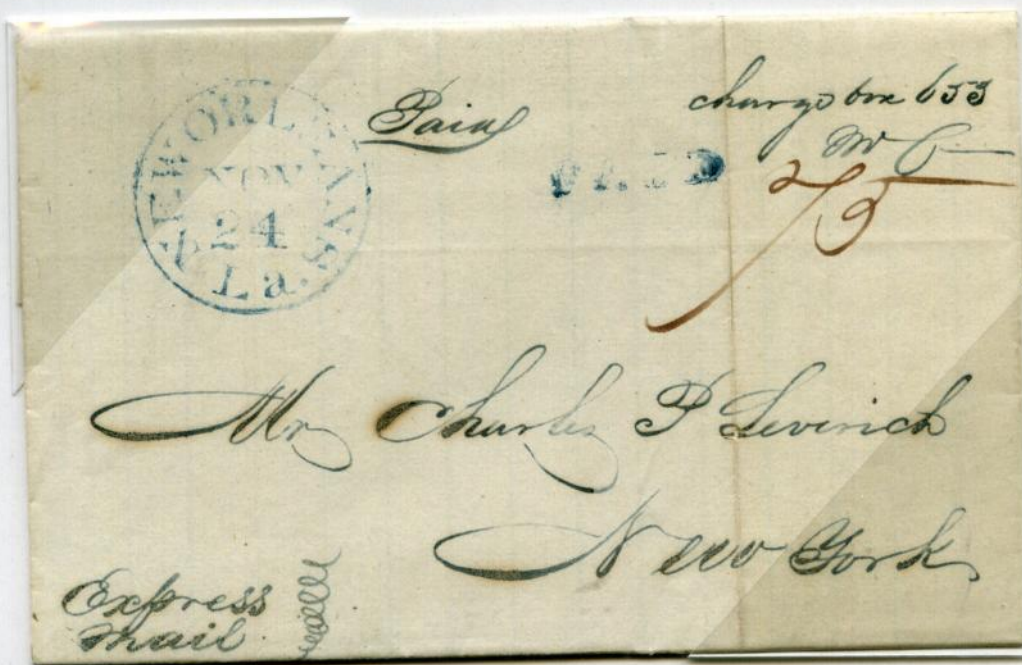 NEW ORLEANS
NOV
24
La.
Paid
PAID
charge box 653
75
Mr Charles P Leverich
New York
Express
Mail